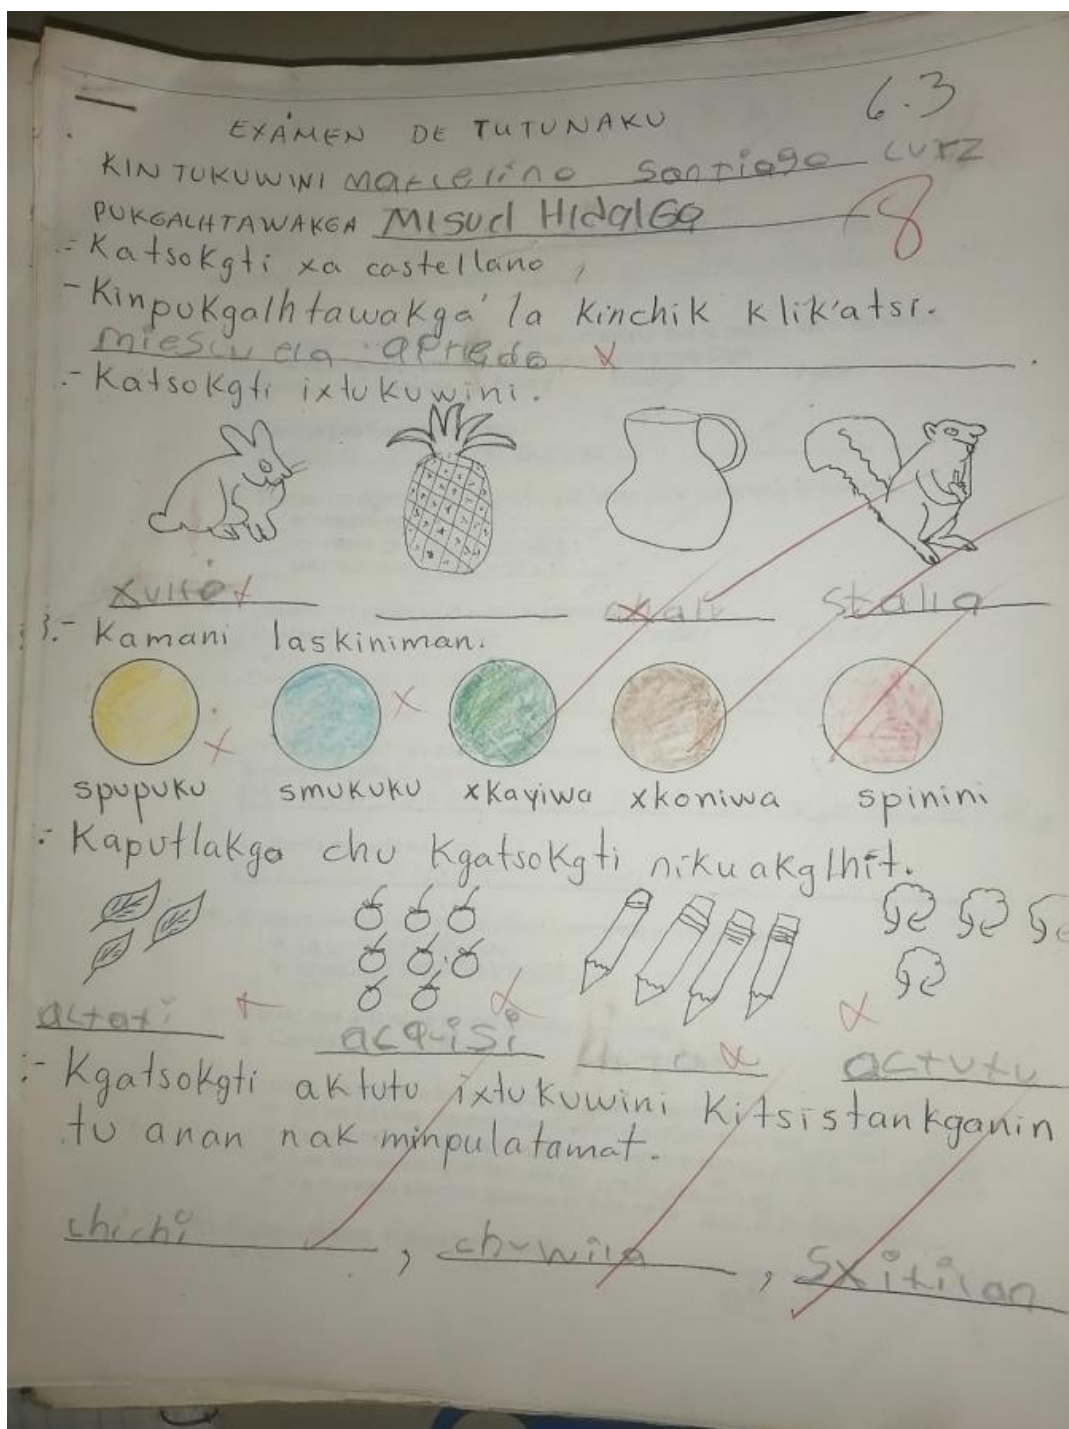 6.3
EXÁMEN DE TUTUNAKU
KIN TUKUWINI marcelino Santiago
PUKGALHTAWAKGA MIguel HIdalGo 8
.- Katsokgti xa castellano
- Kinpukgalhtawakga' la kinchik klik'atsi.
miescuela apredo
.- Katsokgti ixtukuwini.
stalia
3.- Kamani laskiniman.
spupuku smukuku xkayiwa xkoniwa spinini
.- Kaputlakga chu Kgatsokgti niku akglhit.
acquisi actutu
.- Kgatsokgti aktutu ixtukuwini Kitsistankganin
tu anan nak minpulatamat.
chichi , chuwila , Sxitilan